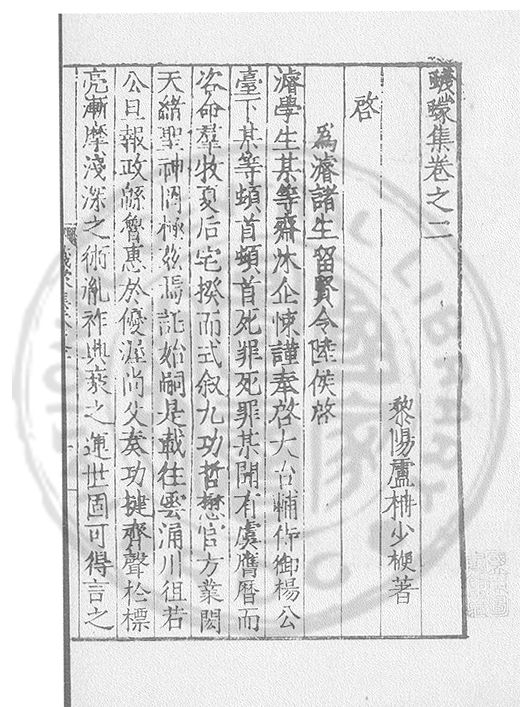 蠛蠓集卷之二
黎陽盧柟少楩著
啓
為濬諸生留賢令陸侯啓
濬學生某等齋沐企悚謹奉啓大台輔侍御楊公
臺下某等頓首頓首死罪死罪某聞有虞膺曆而
咨命羣牧夏后宅揆而式叙九功哲懋官方業閎
天緒聖神罔極茲焉託始嗣是載往雲涌川徂若
公旦報政緜魯惠於優渥尚父奏功揵齊聲於標
亮漸摩淺深之術胤祚興衰之運世固可得言之